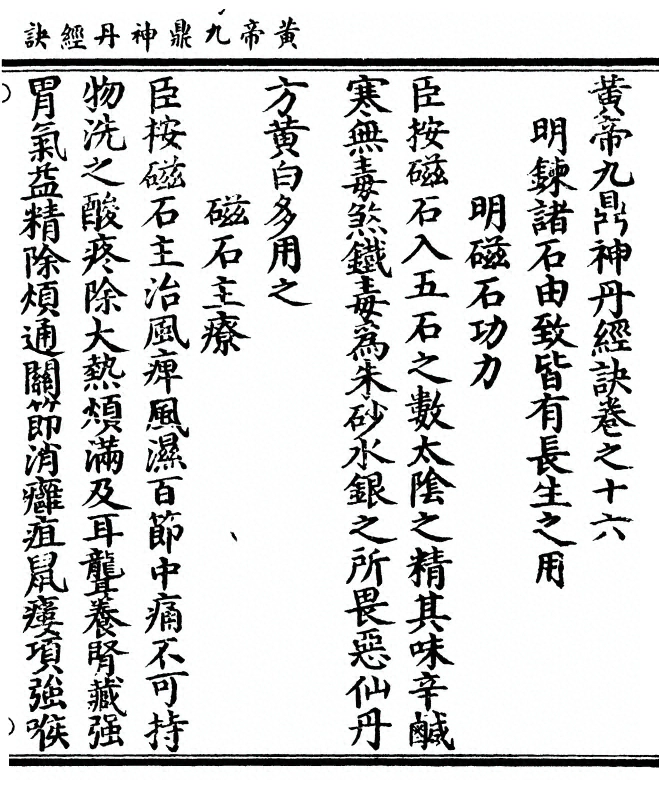 黃帝九鼎神丹經訣
黃帝九鼎神丹經訣卷之十六
明鍊諸石由致皆有長生之用
明磁石功力
臣按磁石入五石之數太陰之精其味辛鹹
寒無毒煞鐵毒為朱砂水銀之所畏惡仙丹
方黃白多用之
磁石主療
臣按磁石主治風痺風濕百節中痛不可持
物洗之酸疼除大熱煩滿及耳聾養腎藏强
胃氣益精除煩通關節消癰疽鼠瘻項強喉